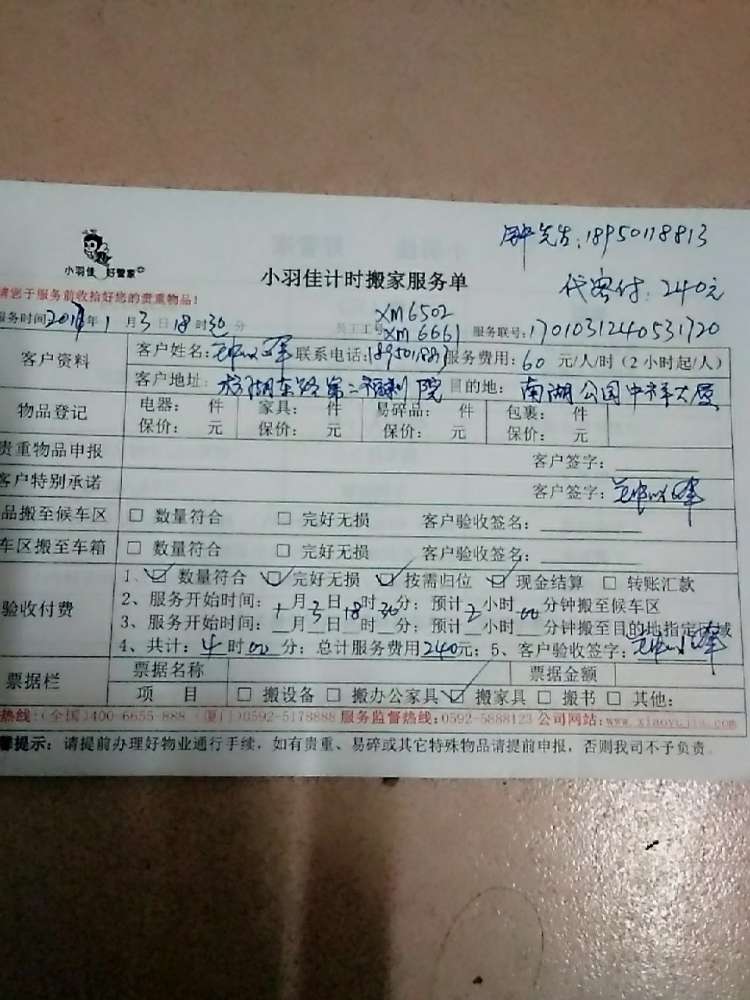 先生:18950118813
小羽佳 好管家
小羽佳计时搬家服务单
代客付:240元
请您于服务前收拾好您的贵重物品!
XM6502
服务时间 年1月3日18时30分 员工工号 XM6661 服务联号:1701031240531720
客户资料 客户姓名: 联系电话: 服务费用:60元/人/时(2小时起/人)
客户地址: 湖东路第二 院 目的地: 南湖公园中祥大厦
物品登记 电器: 件 家具: 件 易碎品: 件 包裹: 件
保价: 元 保价: 元 保价: 元 保价: 元
贵重物品申报 客户签字:
客户特别承诺 客户签字:
品搬至候车区 □ 数量符合 □ 完好无损 客户验收签名:
车区搬至车箱 □ 数量符合 □ 完好无损 客户验收签名:
验收付费 1、☑ 数量符合 ☑ 完好无损 ☑ 按需归位 ☑ 现金结算 □ 转账汇款
2、服务开始时间:1月3日18时30分;预计2小时00分钟搬至候车区
3、服务开始时间: 月 日 时 分;预计 小时 分钟搬至目的地指定区域
4、共计:4时00分;总计服务费用240元;5、客户验收签字:
票据栏 票据名称 票据金额
项 目 □ 搬设备 □ 搬办公家具 ☑ 搬家具 □ 搬书 □ 其他:
热线:(全国)400-6655-888 (厦门)0592-5178888 服务监督热线:0592-5888123 公司网站:www.xiaoyujia.com
馨提示:请提前办理好物业通行手续,如有贵重、易碎或其它特殊物品请提前申报,否则我司不予负责。